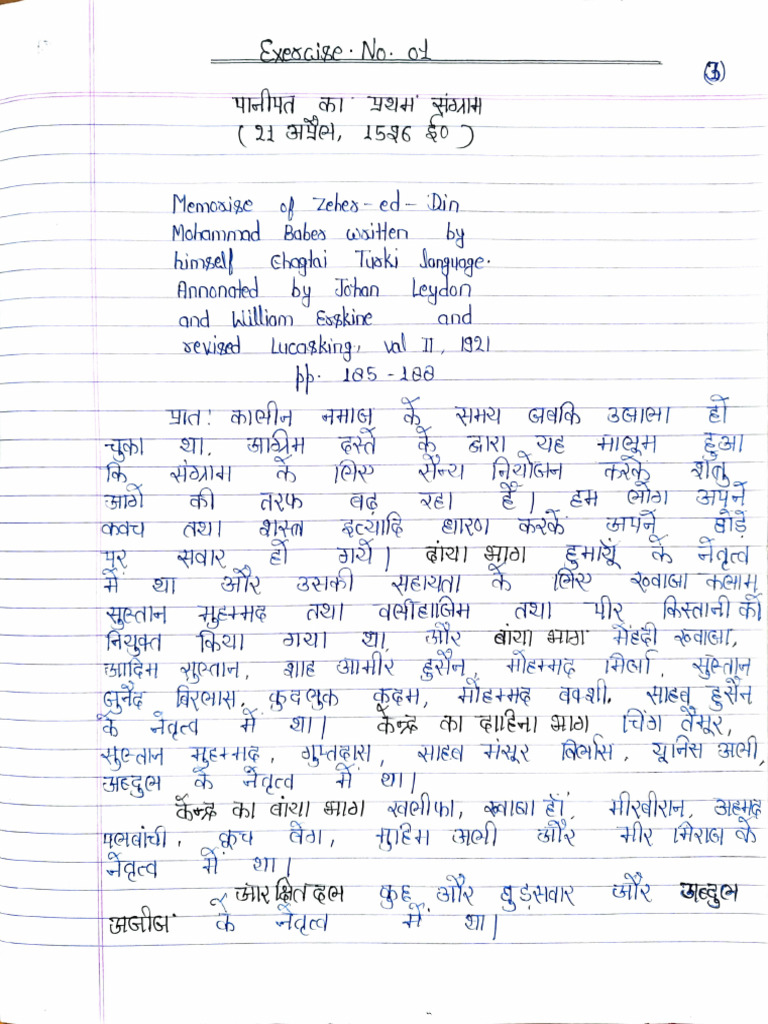 Exercise. No. 01
(3)
पानीपत का प्रथम संग्राम
( 21 अप्रैल, 1526 ई० )
Memorise of Zeher-ed-Din
Mohammad Baber written by
himself Chagtai Turki language.
Annonated by Johan Leydon
and William Erskine and
revised Lucasking, val II, 1921
pp. 185-188
प्रात: कालीन नमाज के समय जबकि उजाला हो
चुका था, अग्रिम दस्ते के द्वारा यह मालूम हुआ
कि संग्राम के लिए सैन्य नियोजन करके शत्रु
आगे की तरफ बढ़ रहा है। हम लोग अपने
कवच तथा शस्त्र इत्यादि धारण करके अपने घोड़े
पर सवार हो गये। दांया भाग हुमायूँ के नेतृत्व
में था और उसकी सहायता के लिए ख्वाजा कलाम,
सुल्तान मुहम्मद तथा वलीहाजिम तथा पीर किस्तानी को
नियुक्त किया गया था, और बांया भाग मेंहदी ख्वाजा,
आदिम सुल्तान, शाह आमीर हुसैन, मोहम्मद मिर्जा, सुल्तान
जुनैद बिरलास, कुदलुक कदम, मौहम्मद बक्शी, साहब हुसैन
के नेतृत्व में था। केन्द्र का दाहिना भाग चिंग तैमूर,
सुल्तान मुहम्मद, गुप्तदास, साहब मंसूर बिर्लास, यूनिस अली,
अब्दुल के नेतृत्व में था।
केन्द्र का बांया भाग खलीफा, ख्वाजा मीरबीरान, अहमद
पलबांची, कूच बेग, मुहिम अली और मीर मिराज के
नेतृत्व में था।
आरक्षित दल और घुड़सवार और अब्दुल
अजीज के नेतृत्व में था।